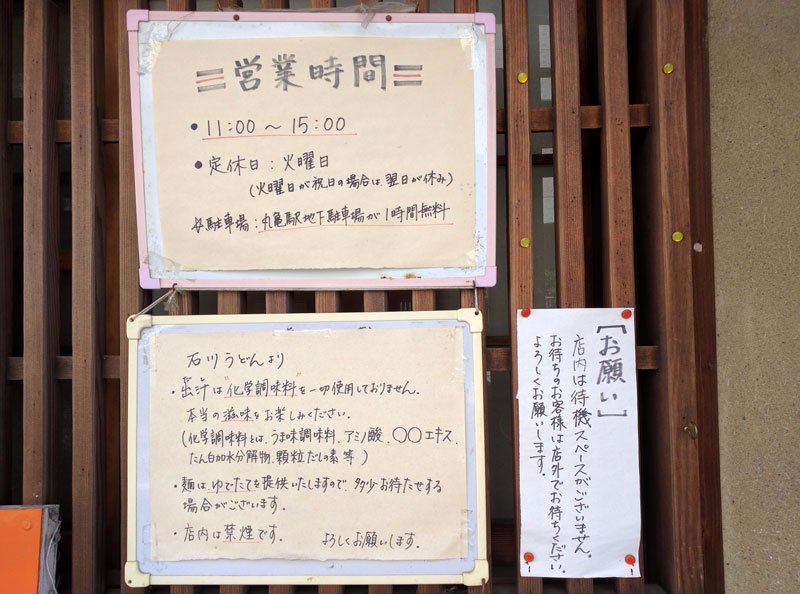 営業時間
・11:00～15:00
・定休日：火曜日
(火曜日が祝日の場合は翌日が休み)
駐車場：丸亀駅地下駐車場が1時間無料
石川うどんより
・出汁は"化学調味料"を一切使用しておりません。
だし
本当の滋味をお楽しみください。
(化学調味料とは、うま味調味料、アミノ酸、〇〇エキス、
たん白加水分解物、顆粒だしの素 等)
・麺はゆでたてを提供いたしますので、多少お待たせする
場合がございます。
・店内は禁煙です。 よろしくお願いします。
[お願い]
店内は待機スペースがございません。
お待ちのお客様は店外でお待ちください。
よろしくお願いします。